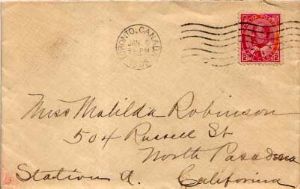 TORONTO, CANADA
JAN
PM
2 2
Miss Matilda Robinson
504 Russell St
North Pasadena
Station A. California